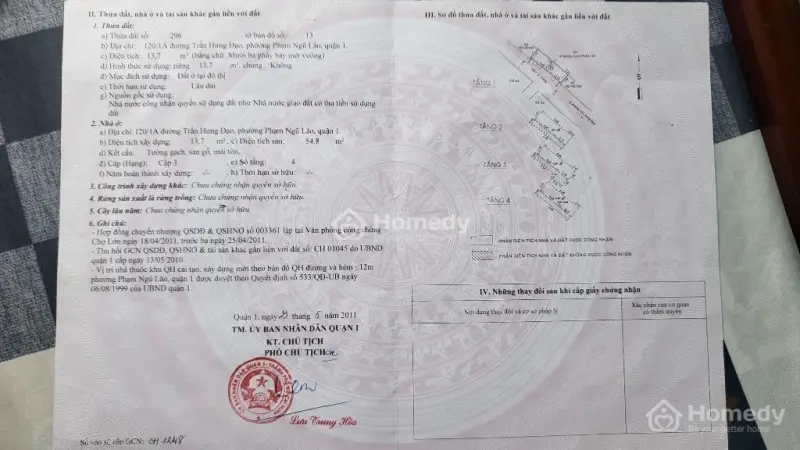 II. Thửa đất, nhà ở và tài sản khác gắn liền với đất
1. Thửa đất:
a) Thửa đất số: 296, tờ bản đồ số: 13
b) Địa chỉ: 120/1A đường Trần Hưng Đạo, phường Phạm Ngũ Lão, quận 1.
c) Diện tích: 13,7 m² (bằng chữ: Mười ba phẩy bảy mét vuông)
d) Hình thức sử dụng: riêng: 13,7 m², chung: Không
đ) Mục đích sử dụng: Đất ở tại đô thị
e) Thời hạn sử dụng: Lâu dài
g) Nguồn gốc sử dụng:
Nhà nước công nhận quyền sử dụng đất như Nhà nước giao đất có thu tiền sử dụng
đất
2. Nhà ở:
a) Địa chỉ: 120/1A đường Trần Hưng Đạo, phường Phạm Ngũ Lão, quận 1.
b) Diện tích xây dựng: 13,7 m², c) Diện tích sàn: 54,8 m²
d) Kết cấu: Tường gạch, sàn gỗ, mái tôn,
đ) Cấp (Hạng): Cấp 3, e) Số tầng: 4
f) Năm hoàn thành xây dựng: -/-, h) Thời hạn sở hữu: -/-
3. Công trình xây dựng khác: Chưa chứng nhận quyền sở hữu.
4. Rừng sản xuất là rừng trồng: Chưa chứng nhận quyền sở hữu.
5. Cây lâu năm: Chưa chứng nhận quyền sở hữu.
6. Ghi chú:
- Hợp đồng chuyển nhượng QSDĐ & QSHNỞ số 003361 lập tại Văn phòng công chứng
Chợ Lớn ngày 18/04/2011, trước bạ ngày 25/04/2011.
- Thu hồi GCN QSDĐ, QSHNỞ & tài sản khác gắn liền với đất số: CH 01045 do UBND
quận 1 cấp ngày 13/05/2010.
- Vị trí nhà thuộc khu QH cải tạo, xây dựng mới theo bản đồ QH đường và hẻm ≤12m
phường Phạm Ngũ Lão, quận 1 được duyệt theo Quyết định số 533/QĐ-UB ngày
06/08/1999 của UBND quận 1.
Quận 1, ngày tháng 5 năm 2011
TM. ỦY BAN NHÂN DÂN QUẬN 1
KT. CHỦ TỊCH
PHÓ CHỦ TỊCH
Lưu Trung Hòa
Số vào sổ cấp GCN: CH 1248
III. Sơ đồ thửa đất, nhà ở và tài sản khác gắn liền với đất
TẦNG 1
TẦNG 2
TẦNG 3
TẦNG 4
PHẦN DIỆN TÍCH NHÀ VÀ ĐẤT ĐƯỢC CÔNG NHẬN
PHẦN DIỆN TÍCH NHÀ VÀ ĐẤT KHÔNG ĐƯỢC CÔNG NHẬN
IV. Những thay đổi sau khi cấp giấy chứng nhận
Nội dung thay đổi và cơ sở pháp lý
Xác nhận của cơ quan
có thẩm quyền
Homedy
Homedy
Be your better home